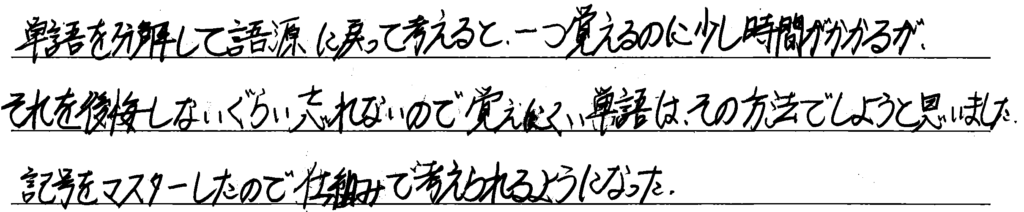 単語を分解して語源に戻って考えると、一つ覚えるのに少し時間がかかるが、
それを後悔しないぐらい忘れないので覚えにくい単語は、その方法でしようと思いました。
記号をマスターしたので仕組みで考えられるようになった。